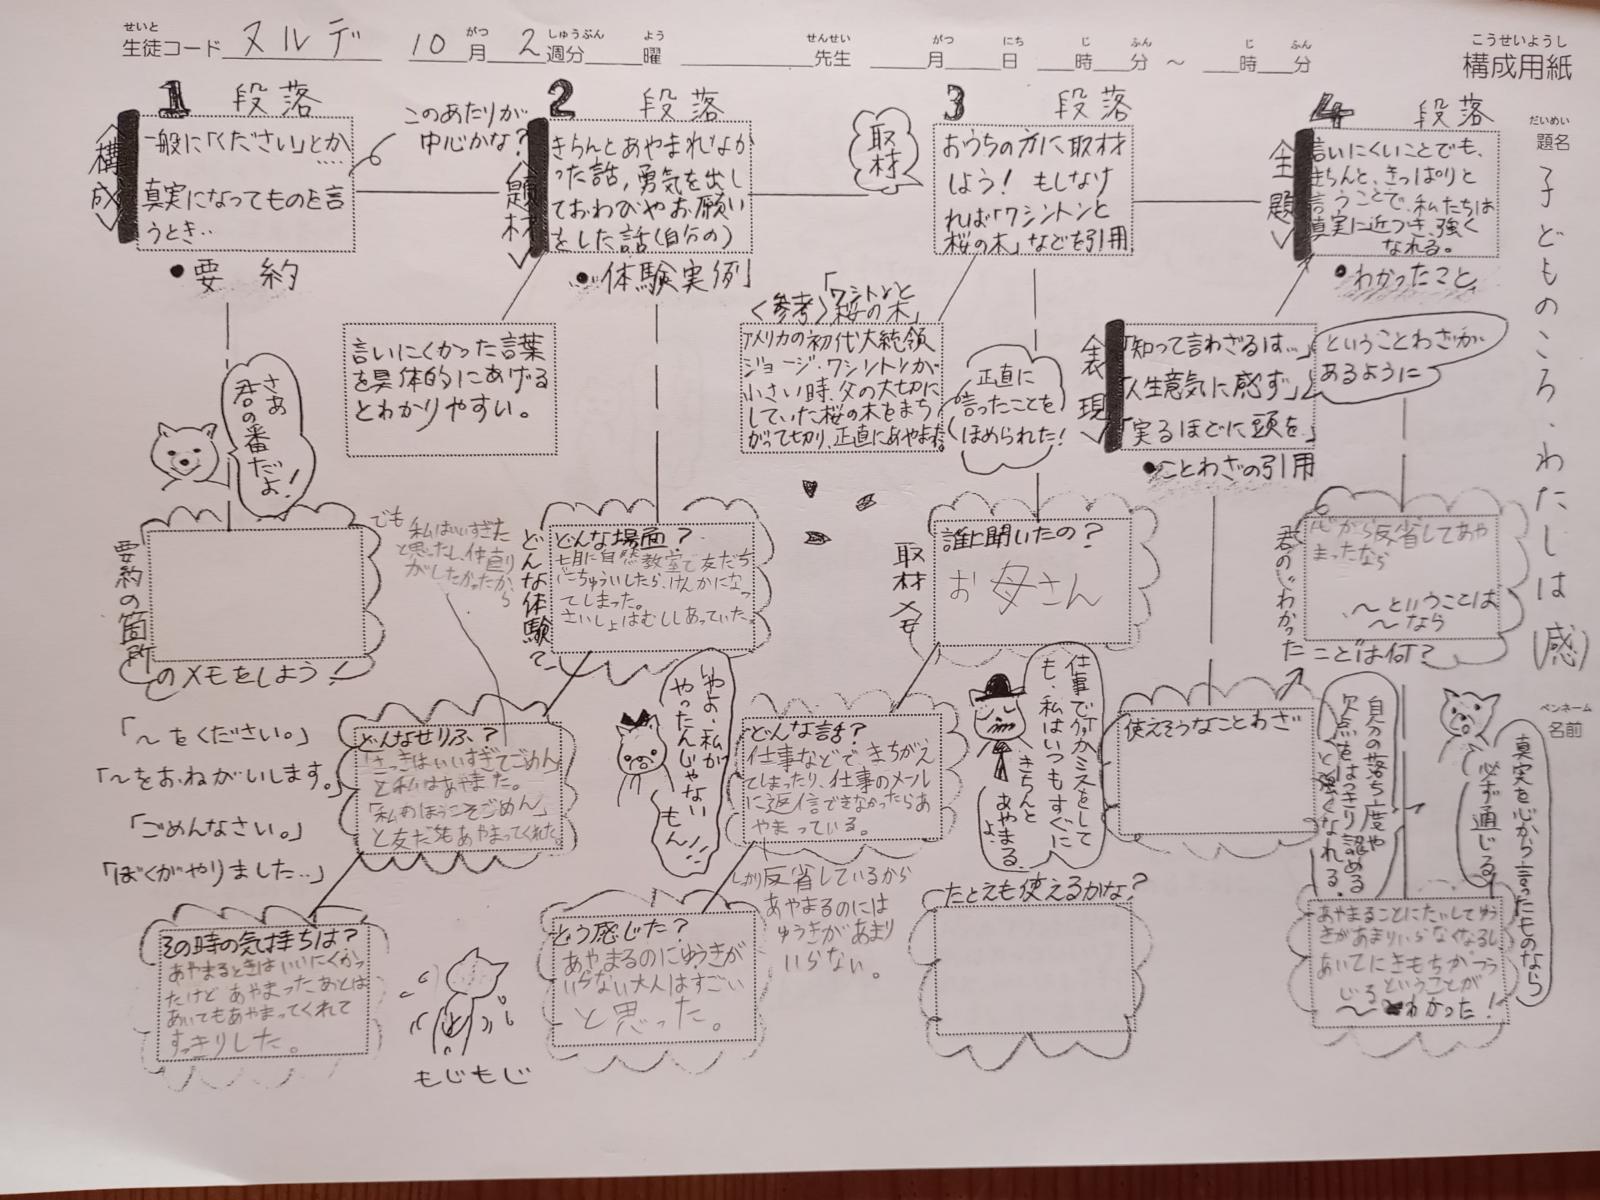 せいと
生徒コード ヌルデ 10 月 2 週分 曜 先生 月 日 時 分 ～ 時 分
がつ しゅうぶん よう せんせい がつ にち じ ふん じ ふん
こうせいようし
構成用紙
だいめい
題名
子どものころ、わたしは(感)
ペンネーム
名前
1 段落
<構成>
一般に「ください」とか
....
真実になってものを言
うとき..
●要約
このあたりが
中心かな?
2 段落
<題材>
きちんとあやまれなか
った話,勇気を出し
ておわびやお願い
をした話(自分の)
●体験実例
取材
3 段落
おうちの方に取材
しよう! もしなけ
れば「ワシントンと
桜の木」などを引用
4 段落
<主題>
言いにくいことでも、
きちんと、きっぱりと
言うことで、私たちは
真実に近づき、強く
なれる。
●わかったこと
言いにくかった言葉
を具体的にあげる
とわかりやすい。
<参考>「ワシントンと
桜の木」
アメリカの初代大統領
ジョージ・ワシントンが
小さい時、父の大切に
していた桜の木をまち
がって切り、正直にあやまった。
正直に
言ったことを
ほめられた!
<表現>
「知って言わざるは…」
「人生意気に感ず」
「実るほどに頭を..」
●ことわざの引用
ということわざが
あるように
さあ
君の番だよ!
要約の箇所
のメモをしよう!
でも
私はいいすぎた
と思ったし、仲直り
がしたかったから
どんな体験?
どんな場面?
七月に自然教室で友だち
にちゅういしたら、けんかになっ
てしまった。
さいしょはむししあっていた。
取材メモ
誰に聞いたの?
お母さん
君の“わかった
ことは何?
心から反省してあや
まったなら
～ということは
～なら
「～をください。」
「～をおねがいします。」
「ごめんなさい。」
「ぼくがやりました..」
どんなせりふ?
「さっきはいいすぎてごめん」
と私はあやまった。
「私のほうこそごめん」
と友だちもあやまってくれた。
いやよ、私が
やったんじゃない
もん!!!
どんな話?
仕事などで、まちがえ
てしまったり、仕事のメール
に返信できなかったらあ
やまっている。
仕事で何かミスをして
も、私はいつもすぐに
きちんと
あやまる
よ
使えそうなことわざ
自分の落ち度や
欠点をはっきり認める
と強くなれる。
真実を心から言ったものなら
必ず通じる!
その時の気持ちは?
あやまるときはいいにくかっ
たけど あやまったあとは
あいてもあやまってくれて
すっきりした。
もじもじ
どう感じた?
あやまるのにゆうきが
いらない大人はすごい
と思った。
しっかり反省しているから
あやまるのには
ゆうきがあまり
いらない。
たとえも使えるかな?
あやまることにたいしてゆう
きがあまりいらなくなるし
あいてにきもちがつう
じるということが
～わかった!